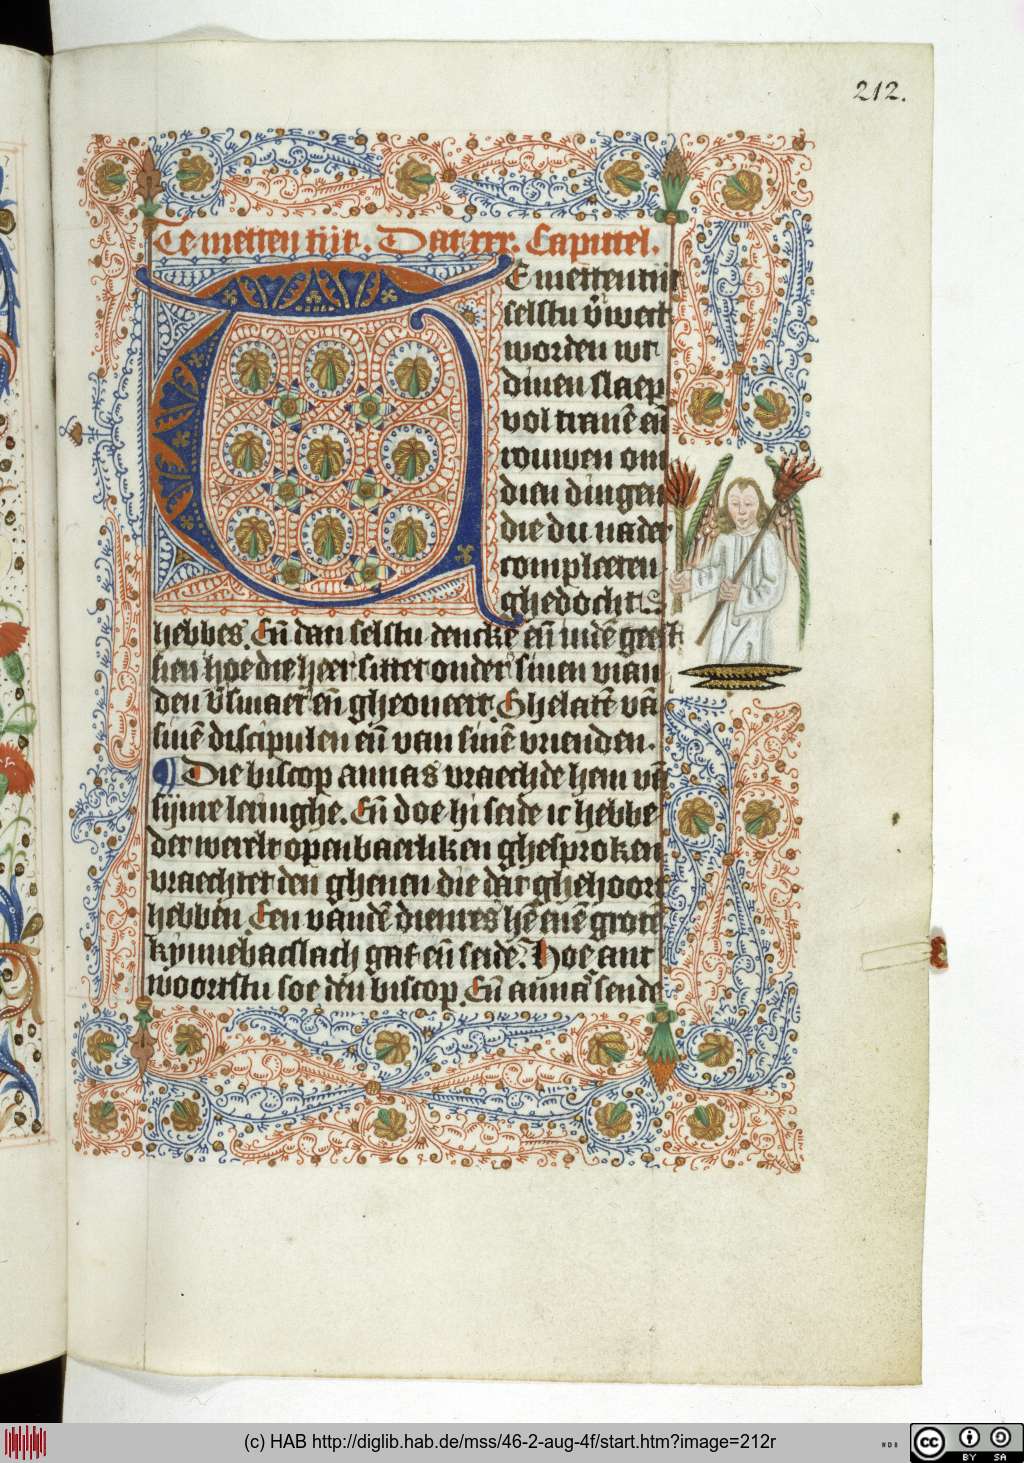 212.
Te metten tijt. Dat xxx. Capittel.
TE metten tijt
selstu v̄wect
worden wt
dinen slaep
vol tranē eñ
rouwen om
dien dingen
die du nader
completen
ghedocht
hebbes. Eñ dan selstu dencke eñ indē geest
sien hoe die heer sittet onder sinen vian
den v̄smaet eñ gheoneert. Ghelatē vā
sinē discipulen eñ van sinē vrienden.
Die biscop annas vraechde hem vā
sijnre leringhe. Eñ doe hi seide ic hebbe
der werelt openbaerliken ghesproken
vraechtet den ghenen die dat ghehoort
hebben. Een vandē dienres hē enē grotē
kynnebacslach gaf eñ seide. Hoe ant
woortstu soe den biscop. Eñ annas sende
(c) HAB http://diglib.hab.de/mss/46-2-aug-4f/start.htm?image=212r
WDB
cc
BY SA